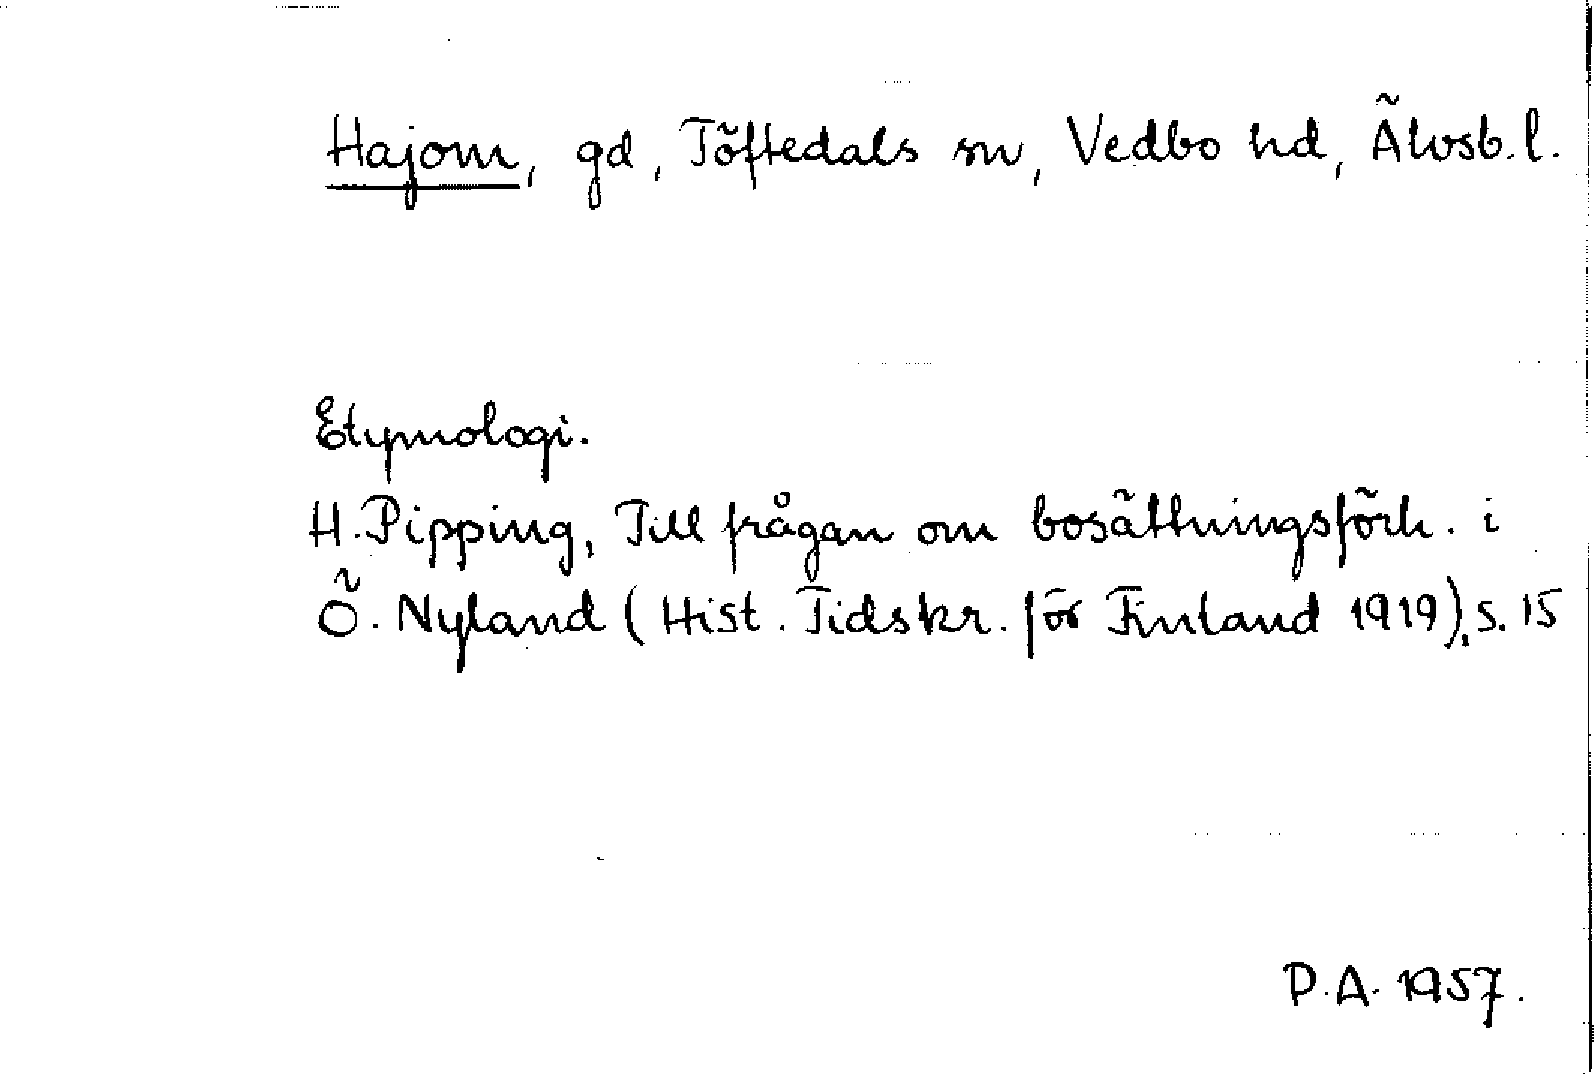 Hajom, gd, Töftedals sn, Vedbo hd, Älvsb. l.
Etymologi.
H. Pipping, Till frågan om bosättningsförh. i
Ö. Nyland (Hist. Tidskr. för Finland 1919), s. 15
P.A. 1957.